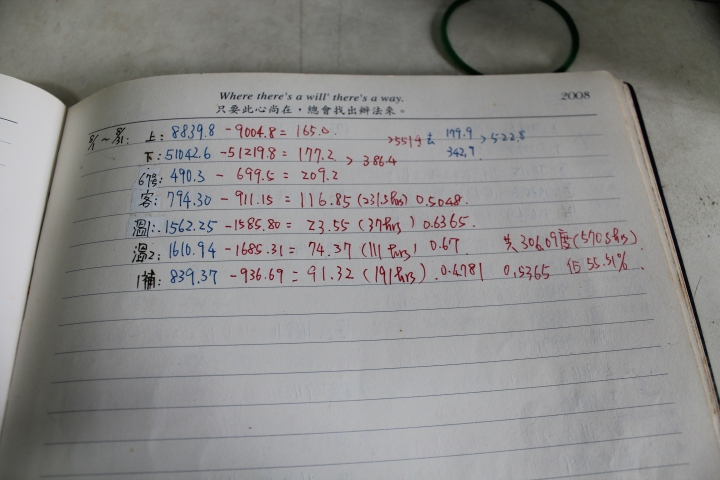 Where there's a will' there's a way.
只要此心尚在，總會找出辦法來。
2008
8/1 ~ 8/31: 上: 8839.8 - 9004.8 = 165.0 199.9 > 522.8
下: 51042.6 - 51219.8 = 177.2 > 386.4 342.9
6號: 490.3 - 699.5 = 209.2
客: 794.30 - 911.15 = 116.85 (231.5hrs) 0.5048
溫1: 1562.25 - 1585.80 = 23.55 (37hrs) 0.6365
溫2: 1610.94 - 1685.31 = 74.37 (111hrs) 0.67 共306.09度(570.5hrs)
1補: 839.37 - 936.69 = 91.32 (191hrs) 0.4781 0.5365 佔55.51%